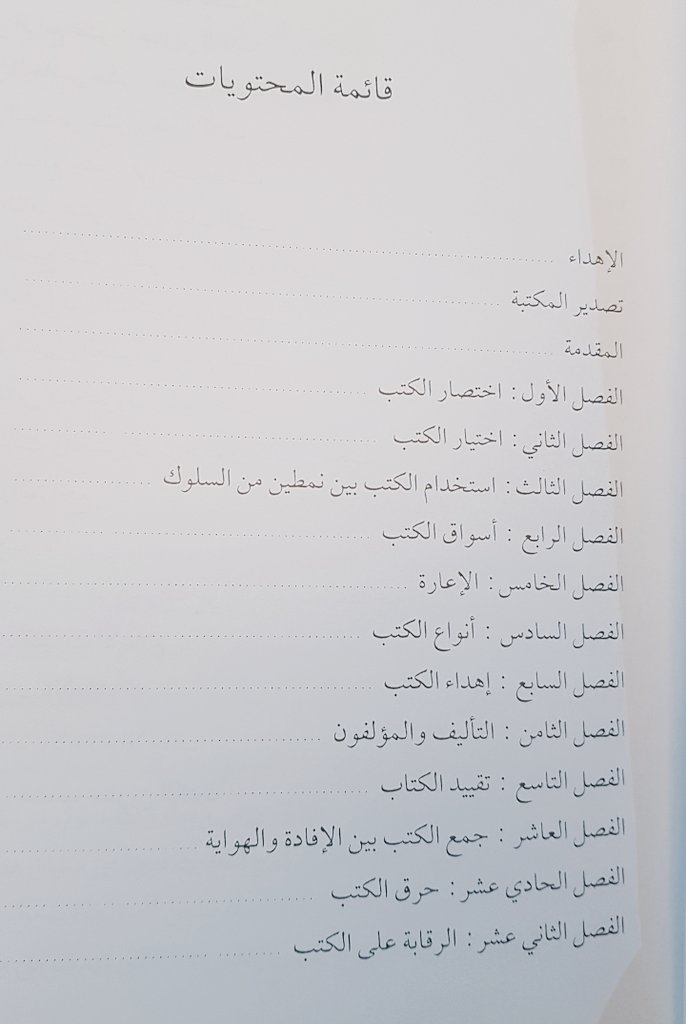 قائمة المحتويات
الإهداء
تصدير المكتبة
المقدمة
الفصل الأول: اختصار الكتب
الفصل الثاني: اختيار الكتب
الفصل الثالث: استخدام الكتب بين نمطين من السلوك
الفصل الرابع : أسواق الكتب
الفصل الخامس: الإعارة
الفصل السادس : أنواع الكتب
الفصل السابع : إهداء الكتب
الفصل الثامن : التأليف والمؤلفون
الفصل التاسع : تقييد الكتاب
الفصل العاشر : جمع الكتب بين الإفادة والهواية
الفصل الحادي عشر: حرق الكتب
الفصل الثاني عشر: الرقابة على الكتب